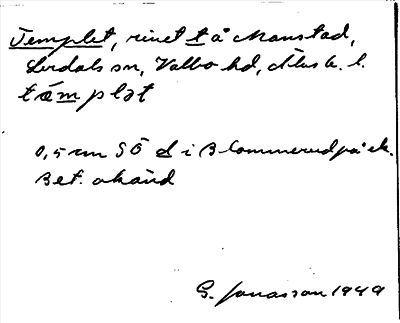 Templet, rivet t å Manstad,
Lerdals sn, Valbo hd, Älvsb. l.
tæmplət
0,5 cm SÖ d i Blommerud på ek.
Bet. okänd
G. Jonasson 1949